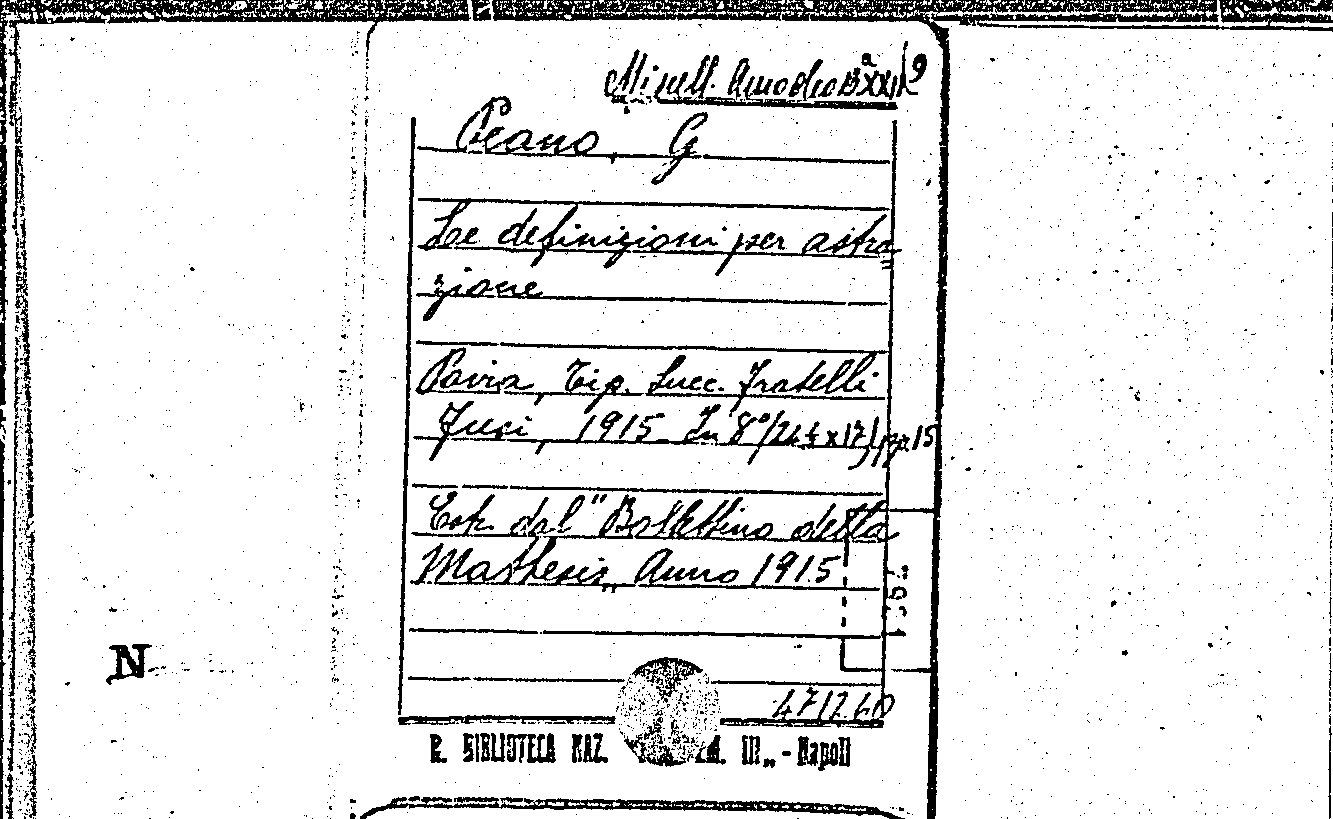 Miscell. Amodeo B XXII 9
Peano, G
Le definizioni per astra
zione
Pavia, Tip. Succ. Fratelli
Fusi, 1915 In 8°/24½x17), pp. 15
Estr. dal "Bollettino della
Mathesis„ Anno 1915
N
471240
R. BIBLIOTECA NAZ. EM. III„ - Napoli